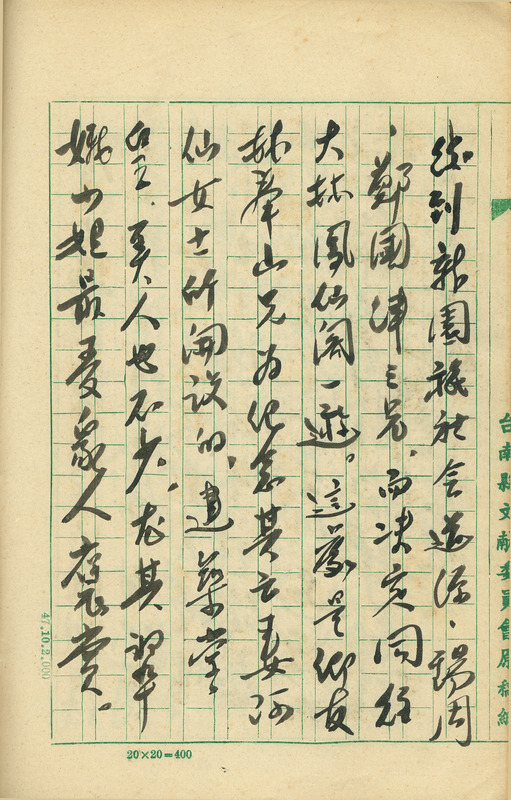 後到新園議社會道源、錫周
、鄭國津三君，而決定同往
大林鳳仙閣一遊。這間是鄉友
林奉山兄為紀念其亡妻阿
仙女士所開設的，建築堂
皇，美人也不少，尤其翠
娥小姐最受眾人讚賞。
台南縣文献委員會原稿紙
47.10.2,000
20×20=400